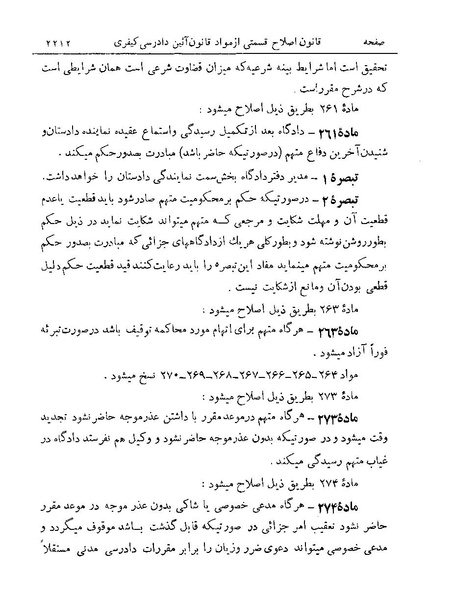 صفحه قانون اصلاح قسمتی ازمواد قانون آئین دادرسی کیفری ۲۲۱۲
تحقیق است اما شرایط بینه شرعیه که میزان قضاوت شرعی است همان شرایطی است
که درشرح مقرراست .
مادهٔ ۲۶۱ بطریق ذیل اصلاح میشود :
مادهٔ ۲۶۱ - دادگاه بعد ازتکمیل رسیدگی واستماع عقیده نماینده دادستان و
شنیدن آخرین دفاع متهم (درصورتیکه حاضر باشد) مبادرت بصدور حکم میکند .
تبصرهٔ ۱ - مدیر دفتر دادگاه بخش سمت نمایندگی دادستان را خواهد داشت .
تبصرهٔ ۲ - درصورتیکه حکم بر محکومیت متهم صادرشود باید قطعیت یاعدم
قطعیت آن و مهلت شکایت و مرجعی که متهم میتواند شکایت نماید در ذیل حکم
بطور روشن نوشته شود وبطورکلی هریك ازدادگاههای جزائی که مبادرت بصدور حکم
بر محکومیت متهم مینماید مفاد این تبصره را باید رعایت کنند قید قطعیت حکم دلیل
قطعی بودن آن ومانع ازشکایت نیست .
مادهٔ ۲۶۳ بطریق ذیل اصلاح میشود :
مادهٔ ۲۶۳ - هرگاه متهم برای اتهام مورد محاکمه توقیف باشد درصورت تبرئه
فوراً آزاد میشود .
مواد ۲۶۴-۲۶۵-۲۶۶-۲۶۷-۲۶۸-۲۶۹-۲۷۰ نسخ میشود .
مادهٔ ۲۷۳ بطریق ذیل اصلاح میشود :
مادهٔ ۲۷۳ - هرگاه متهم درموعد مقرر با داشتن عذرموجه حاضر نشود تجدید
وقت میشود و در صورتیکه بدون عذرموجه حاضر نشود و وکیل هم نفرستد دادگاه در
غیاب متهم رسیدگی میکند .
مادهٔ ۲۷۴ بطریق ذیل اصلاح میشود :
مادهٔ ۲۷۴ - هرگاه مدعی خصوصی یا شاکی بدون عذر موجه در موعد مقرر
حاضر نشود تعقیب امر جزائی در صورتیکه قابل گذشت باشد موقوف میگردد و
مدعی خصوصی میتواند دعوی ضرر وزیان را برابر مقررات دادرسی مدنی مستقلاً